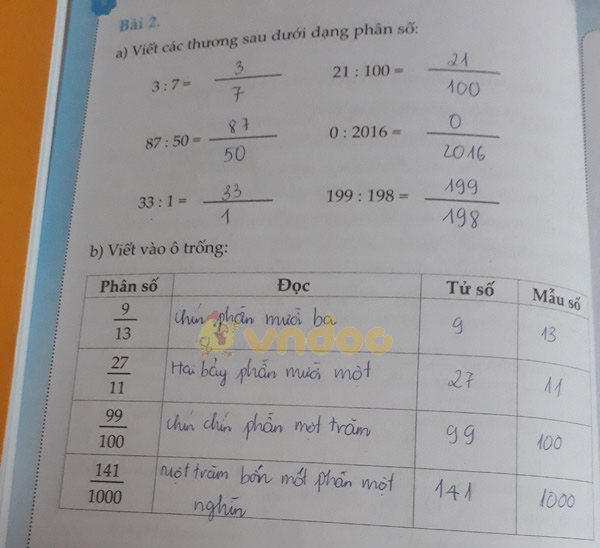 Bài 2.
a) Viết các thương sau dưới dạng phân số:
3 : 7 = 3/7 21 : 100 = 21/100
87 : 50 = 87/50 0 : 2016 = 0/2016
33 : 1 = 33/1 199 : 198 = 199/198
b) Viết vào ô trống:
Phân số Đọc Tử số Mẫu số
9/13 chín phần mười ba 9 13
vndoc
27/11 Hai bảy phần mười một 27 11
99/100 chín chín phần một trăm 99 100
141/1000 một trăm bốn mốt phần một 141 1000
nghìn